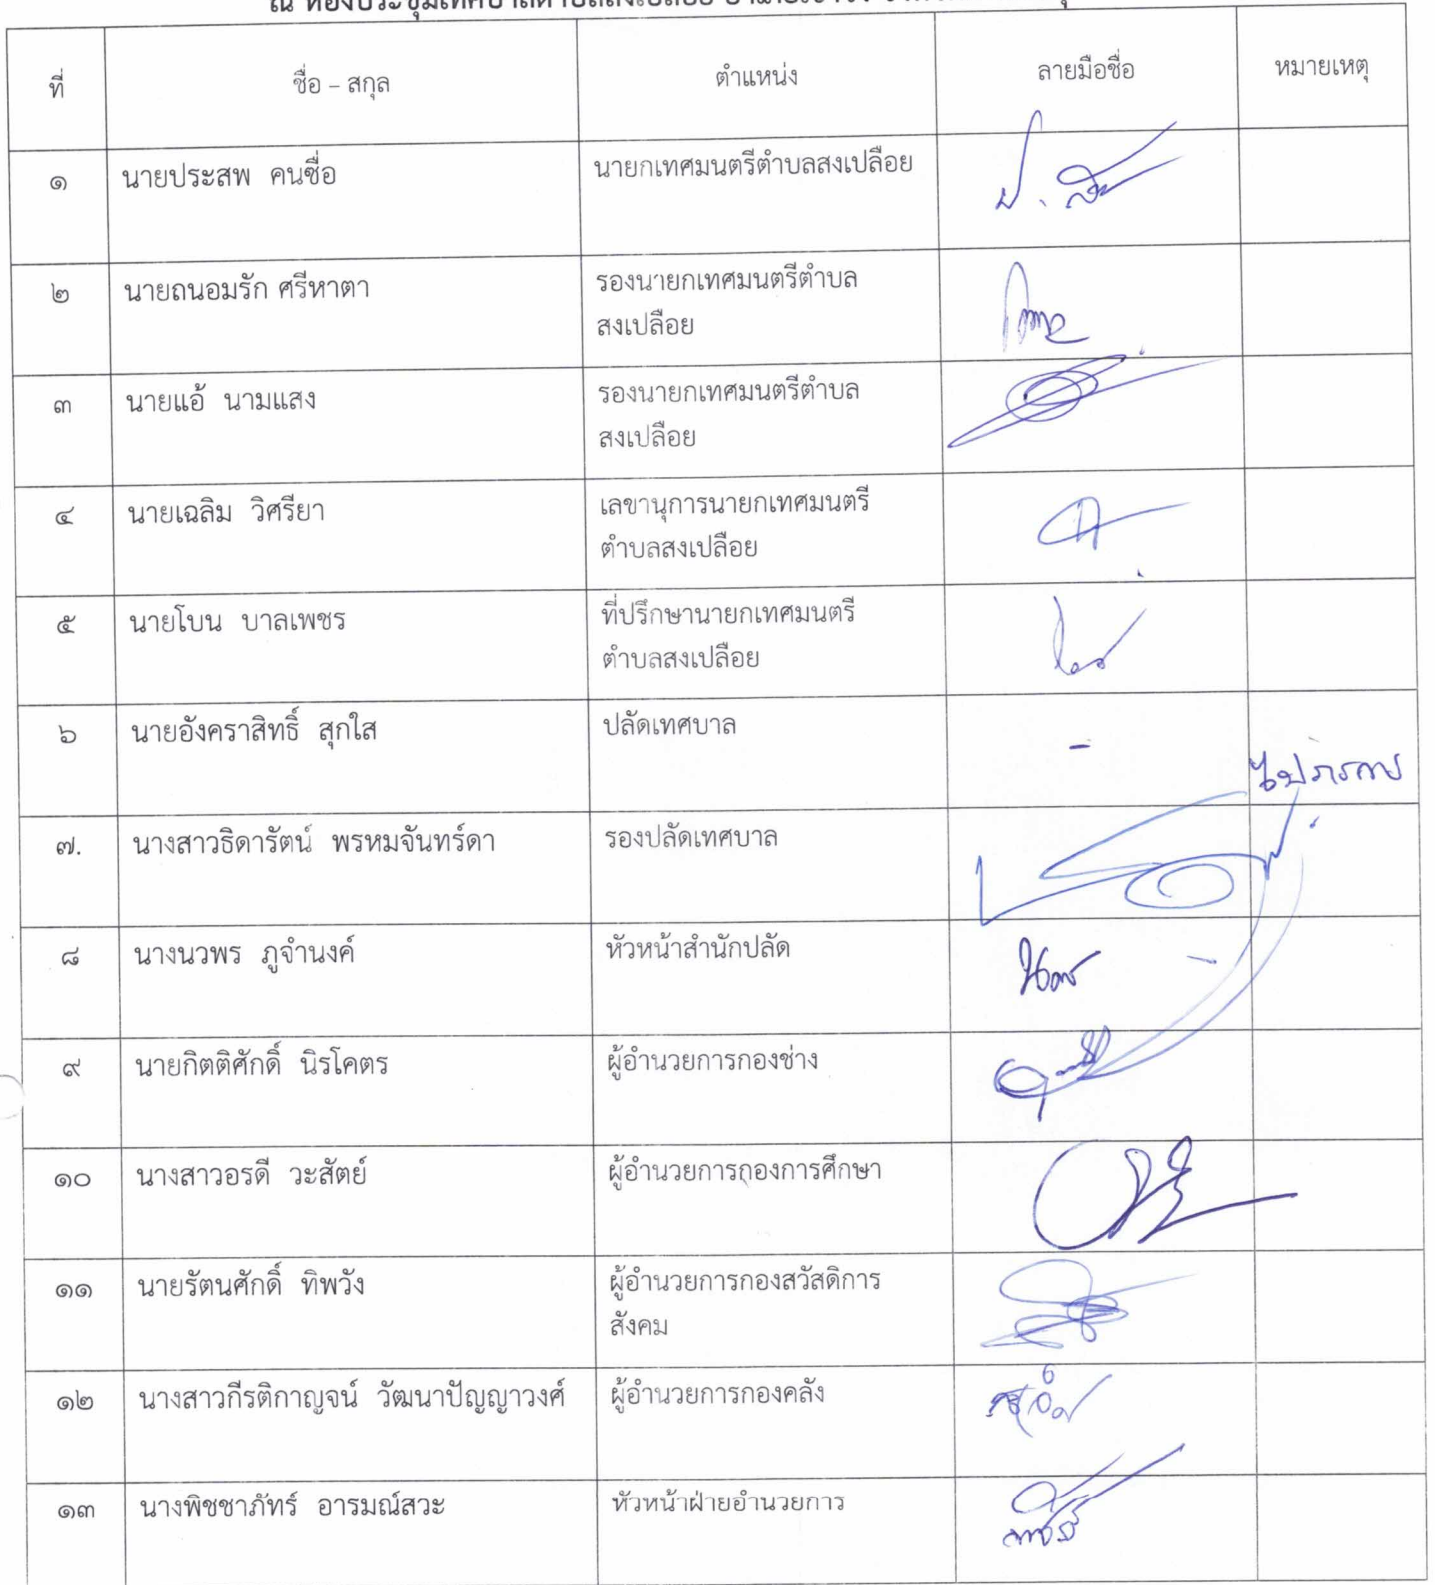 ที่ ชื่อ – สกุล ตำแหน่ง ลายมือชื่อ หมายเหตุ
๑ นายประสพ คนซื่อ นายกเทศมนตรีตำบลสงเปลือย
๒ นายถนอมรัก ศรีหาตา รองนายกเทศมนตรีตำบล
สงเปลือย
๓ นายแอ้ นามแสง รองนายกเทศมนตรีตำบล
สงเปลือย
๔ นายเฉลิม วิศรียา เลขานุการนายกเทศมนตรี
ตำบลสงเปลือย
๕ นายโบน บาลเพชร ที่ปรึกษานายกเทศมนตรี
ตำบลสงเปลือย
๖ นายอังคราสิทธิ์ สุกใส ปลัดเทศบาล -
ไปราชการ
๗. นางสาวธิดารัตน์ พรหมจันทร์ดา รองปลัดเทศบาล
๘ นางนวพร ภูจำนงค์ หัวหน้าสำนักปลัด
๙ นายกิตติศักดิ์ นิรโคตร ผู้อำนวยการกองช่าง
๑๐ นางสาวอรดี วะสัตย์ ผู้อำนวยการกองการศึกษา
๑๑ นายรัตนศักดิ์ ทิพวัง ผู้อำนวยการกองสวัสดิการ
สังคม
๑๒ นางสาวกีรติกาญจน์ วัฒนาปัญญาวงศ์ ผู้อำนวยการกองคลัง
๑๓ นางพิชชาภัทร์ อารมณ์สวะ หัวหน้าฝ่ายอำนวยการ